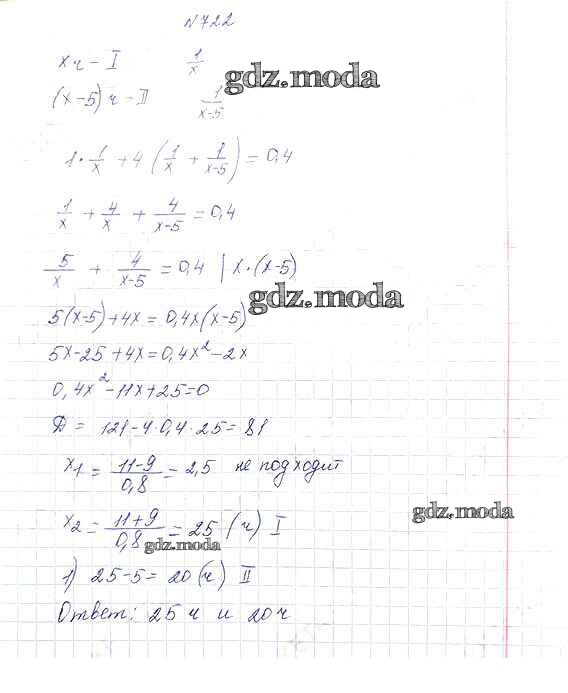 N722
x ч – I 1/x
gdz.moda
(x–5) ч – II 1/(x–5)
1 · 1/x + 4 (1/x + 1/(x–5)) = 0,4
1/x + 4/x + 4/(x–5) = 0,4
5/x + 4/(x–5) = 0,4 | x·(x–5)
gdz.moda
5(x–5)+4x = 0,4x(x–5)
5x–25+4x=0,4x²–2x
0,4x²–11x+25=0
Д = 121–4·0,4·25=81
x₁ = (11–9)/0,8 = 2,5 не подходит
gdz.moda
x₂ = (11+9)/0,8 = 25 (ч) I
gdz.moda
1) 25–5= 20(ч) II
Ответ: 25 ч и 20 ч